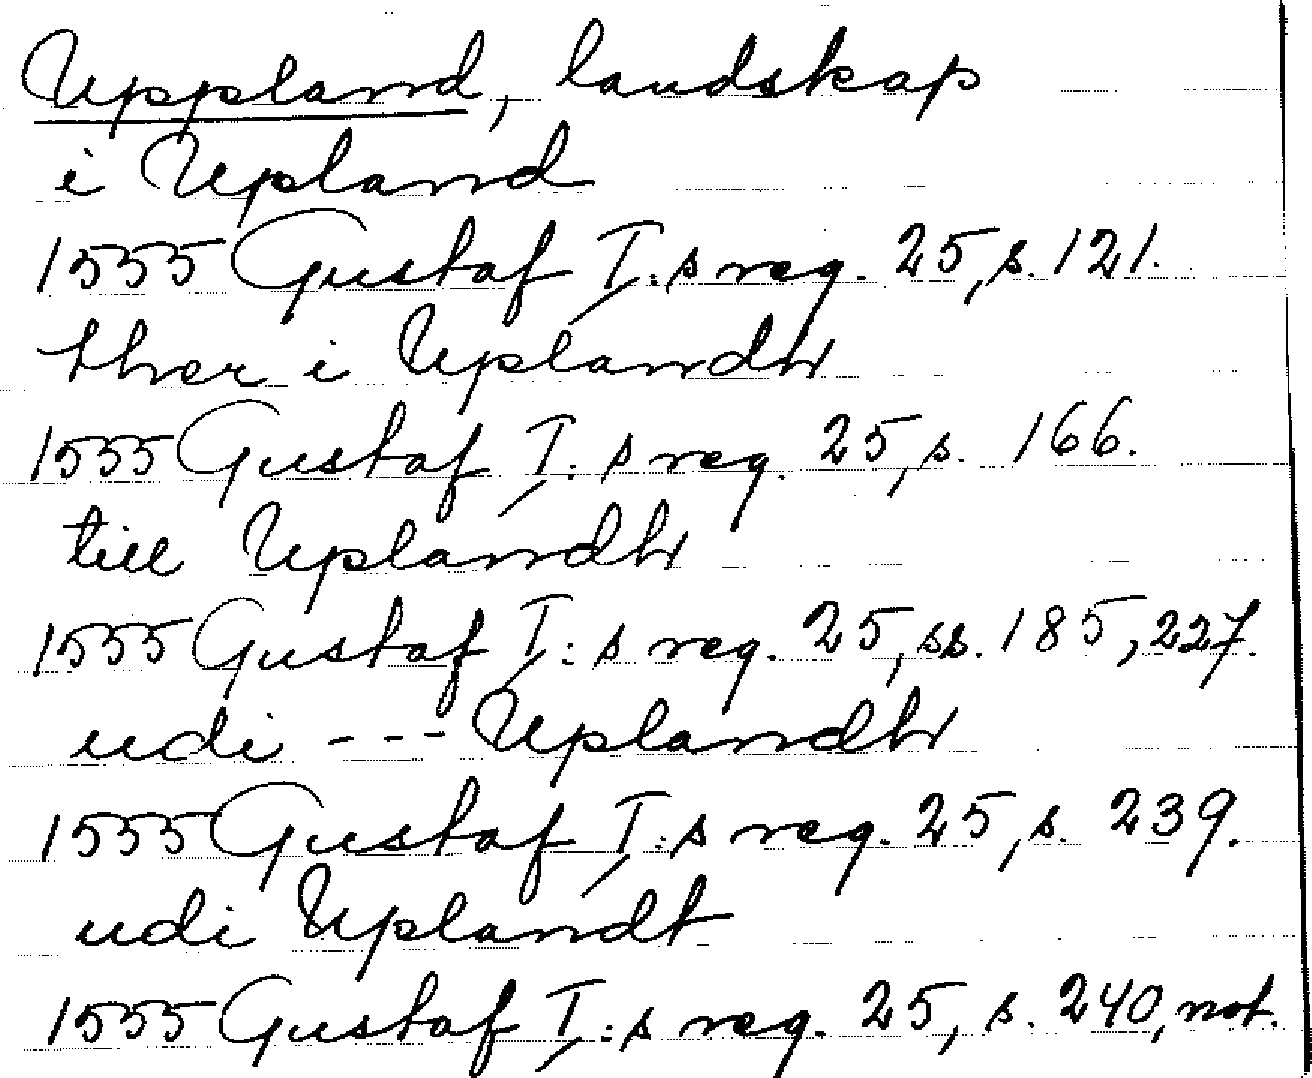 Uppland, landskap
i Upland
1555 Gustaf I:s reg. 25, s. 121.
ther i Uplandh
1555 Gustaf I:s reg. 25, s. 166.
till Uplandh
1555 Gustaf I:s reg. 25, ss. 185, 227.
udi --- Uplandh
1555 Gustaf I:s reg. 25, s. 239.
udi Uplandt
1555 Gustaf I:s reg. 25, s. 240, not.